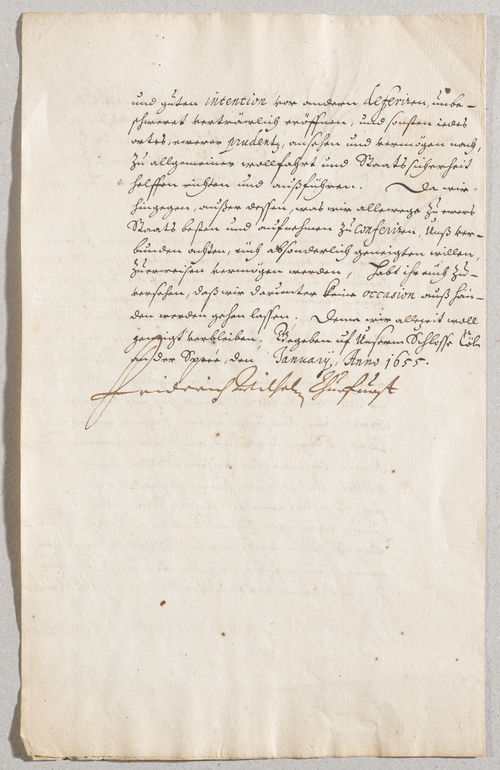 und guten intention vor andern deferiren, unbe-
schweret verträwlich eröffnen, und sonsten iedes
ortes, ewerer prudentz, ansehen und vermögen nach,
zu allgemeiner wollfahrt und Staats sicherheit
helffen richten und außführen. Da wir
hingegen, außer dessen, was wir allewege zu ewers
Staats besten und aufnehmen zu conferiren, Unß ver-
bunden achten, euch absonderlich geneigten willen,
zuerweisen vermögen werden, habt ihr euch zu-
versehen, daß wir darunter keine occasion auß hän-
den werden gehen lassen. Denen wir allezeit woll
geneigt verbleiben. Gegeben uf Unserm Schlosse Cöln
an der Spree, den January, Anno 1655.
Friderich Wilhelm Churfürst